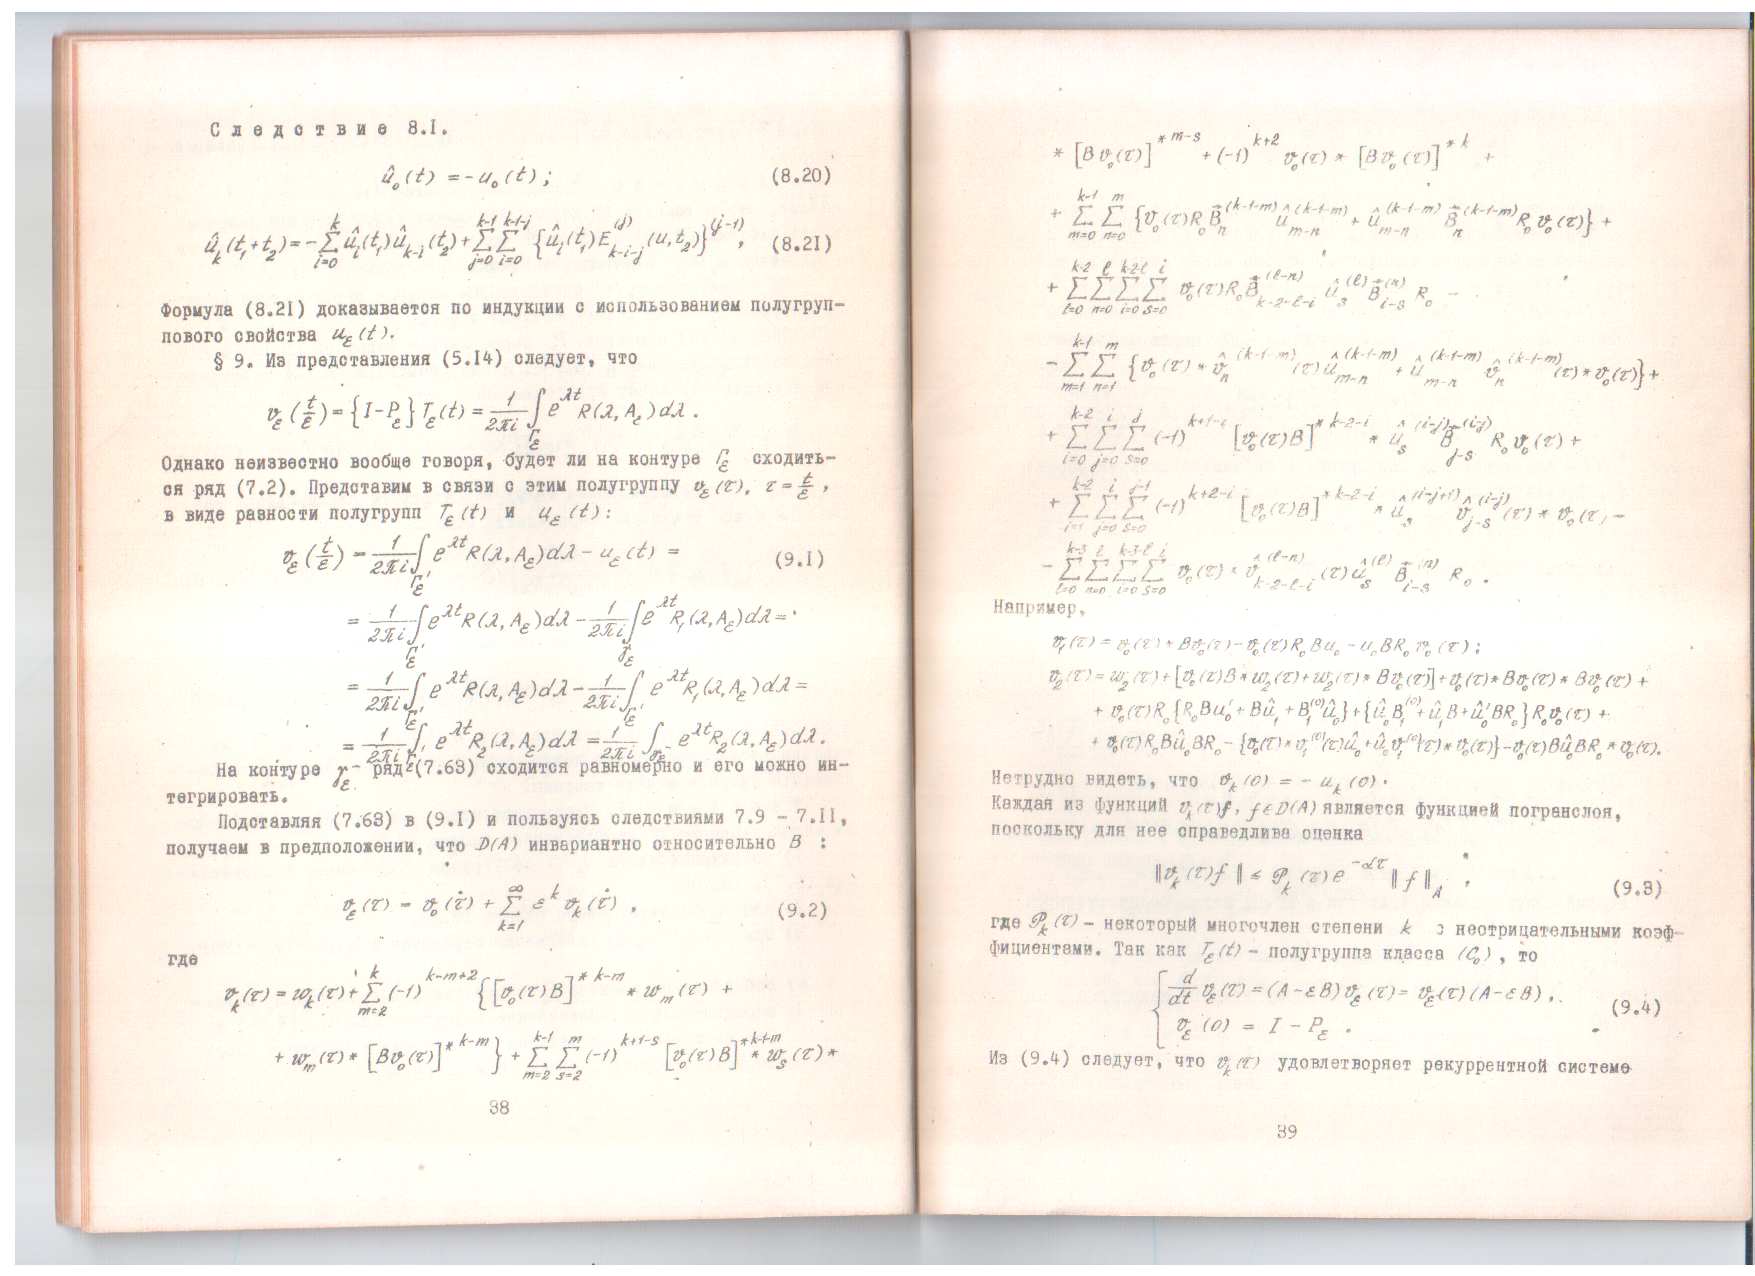 Следствие 8.1.
û₀(t) = -u₀(t); (8.20)
û_k(t₁+t₂) = -∑_{i=0}^{k} û_i(t₁)û_{k-i}(t₂) + ∑_{j=0}^{k-1} ∑_{i=0}^{k-1-j} {û_i(t₁)E^{(j)}_{k-i-j}(u,t₂)}^{(j-1)}, (8.21)
Формула (8.21) доказывается по индукции с использованием полугруп-
пового свойства u_ε(t).
§ 9. Из представления (5.14) следует, что
v_ε(t/ε) = {I-P_ε}T_ε(t) = 1/(2πi) ∫_{Γ_ε} e^{λt}R(λ,A_ε)dλ.
Однако неизвестно вообще говоря, будет ли на контуре Γ_ε сходить-
ся ряд (7.2). Представим в связи с этим полугруппу v_ε(τ), τ = t/ε,
в виде разности полугрупп T_ε(t) и u_ε(t):
v_ε(t/ε) = 1/(2πi) ∫_{Γ'_ε} e^{λt}R(λ,A_ε)dλ - u_ε(t) = (9.1)
= 1/(2πi) ∫_{Γ'_ε} e^{λt}R(λ,A_ε)dλ - 1/(2πi) ∫_{γ_ε} e^{λt}R₁(λ,A_ε)dλ =
= 1/(2πi) ∫_{Γ'_ε} e^{λt}R(λ,A_ε)dλ - 1/(2πi) ∫_{Γ'_ε} e^{λt}R₁(λ,A_ε)dλ =
= 1/(2πi) ∫_{Γ'_ε} e^{λt}R₂(λ,A_ε)dλ = 1/(2πi) ∫_{γ⁻_ε} e^{λt}R₂(λ,A_ε)dλ.
На контуре γ⁻_ε ряд (7.63) сходится равномерно и его можно ин-
тегрировать.
Подставляя (7.63) в (9.1) и пользуясь следствиями 7.9 - 7.11,
получаем в предположении, что D(A) инвариантно относительно B :
v_ε(τ) = v₀(τ) + ∑_{k=1}^{∞} ε^k v_k(τ), (9.2)
где
v_k(τ) = w_k(τ) + ∑_{m=2}^{k} (-1)^{k-m+2} {[v₀(τ)B]^{*k-m} * w_m(τ) +
+ w_m(τ) * [Bv₀(τ)]^{*k-m}} + ∑_{m=2}^{k-1} ∑_{s=2}^{m} (-1)^{k+1-s} [v₀(τ)B]^{*k-1-m} * w_s(τ) *
38
* [Bv₀(τ)]^{*m-s} + (-1)^{k+2} v₀(τ) * [Bv₀(τ)]^{*k} +
+ ∑_{m=0}^{k-1} ∑_{n=0}^{m} {v₀(τ)R₀B̃_n^{(k-1-m)} û_{m-n}^{(k-1-m)} + û_{m-n}^{(k-1-m)} B̃_n^{(k-1-m)} R₀v₀(τ)} +
+ ∑_{l=0}^{k-2} ∑_{n=0}^{l} ∑_{i=0}^{k-2-l} ∑_{s=0}^{i} v₀(τ)R₀B̃_{k-2-l-i}^{(l-n)} û_s^{(l)} B̃_{i-s}^{(n)} R₀ -
- ∑_{m=1}^{k-1} ∑_{n=1}^{m} {v₀(τ) * v̂_n^{(k-1-m)}(τ)û_{m-n}^{(k-1-m)} + û_{m-n}^{(k-1-m)} v̂_n^{(k-1-m)}(τ) * v₀(τ)} +
+ ∑_{i=0}^{k-2} ∑_{j=0}^{i} ∑_{s=0}^{j} (-1)^{k+1-i} [v₀(τ)B]^{*k-2-i} * û_s^{(i-j)} B̃_{j-s}^{(i-j)} R₀v₀(τ) +
+ ∑_{i=1}^{k-2} ∑_{j=0}^{i} ∑_{s=0}^{j-1} (-1)^{k+2-i} [v₀(τ)B]^{*k-2-i} * û_s^{(i-j+1)} v̂_{j-s}^{(i-j)}(τ) * v₀(τ) -
- ∑_{l=0}^{k-3} ∑_{n=0}^{l} ∑_{i=0}^{k-3-l} ∑_{s=0}^{i} v₀(τ) * v̂_{k-2-l-i}^{(l-n)}(τ)û_s^{(l)} B̃_{i-s}^{(n)} R₀.
Например,
v₁(τ) = v₀(τ) * Bv₀(τ) - v₀(τ)R₀Bu₀ - u₀BR₀v₀(τ);
v₂(τ) = w₂(τ) + [v₀(τ)B * w₂(τ) + w₂(τ) * Bv₀(τ)] + v₀(τ) * Bv₀(τ) * Bv₀(τ) +
+ v₀(τ)R₀{R₀Bu₀' + Bû₁ + B₁^{(0)}û₀} + {û₀B₁^{(0)} + û₁B + û₀'BR₀}R₀v₀(τ) +
+ v₀(τ)R₀Bû₀BR₀ - {v₀(τ) * v₁^{(0)}(τ)û₀ + û₀v₁^{(0)}(τ) * v₀(τ)} - v₀(τ)Bû₀BR₀ * v₀(τ).
Нетрудно видеть, что v_k(0) = - u_k(0).
Каждая из функций v_k(τ)f, f∈D(A) является функцией погранслоя,
поскольку для нее справедлива оценка
‖v_k(τ)f‖ ≤ 𝒫_k(τ)e^{-ατ}‖f‖_A, (9.3)
где 𝒫_k(τ) - некоторый многочлен степени k с неотрицательными коэф-
фициентами. Так как T_ε(t) - полугруппа класса (C₀), то
{ d/dt v_ε(τ) = (A-εB)v_ε(τ) = v_ε(τ)(A-εB),
v_ε(0) = I - P_ε. (9.4)
Из (9.4) следует, что v_k(τ) удовлетворяет рекуррентной системе
39